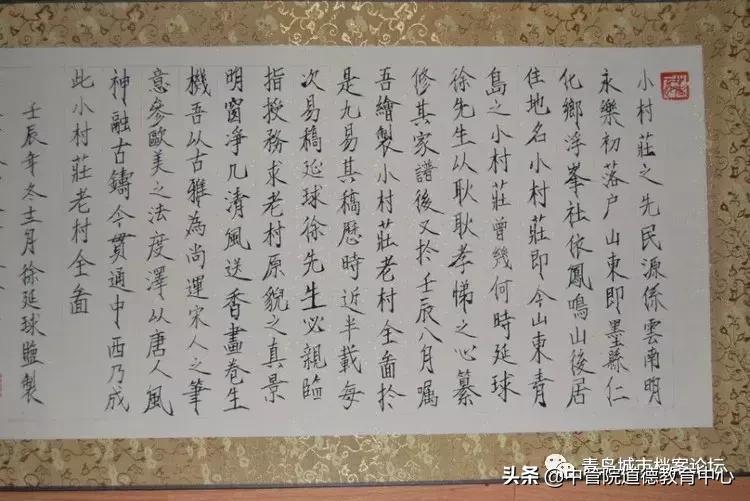 小村莊之先民源係雲南明
永樂初落户山東即墨縣仁
化鄉浮峯社依鳳鳴山後居
住地名小村莊即今山東青
島之小村莊曾幾何時延球
徐先生以耿耿孝悌之心纂
修其家譜後又於壬辰八月囑
吾繪製小村莊老村全畵於
是九易其稿歷時近半載每
次易稿延球徐先生必親臨
指授務求老村原貌之真景
明窗淨几清風送香畫卷生
機吾以古雅為尚運宋人之筆
意參歐美之法度澤以唐人風
神融古鑄今貫通中西乃成
此小村莊老村全畵
壬辰年冬十二月徐延球監製
青岛城市档客论坛
头条 @中管院道德教育中心